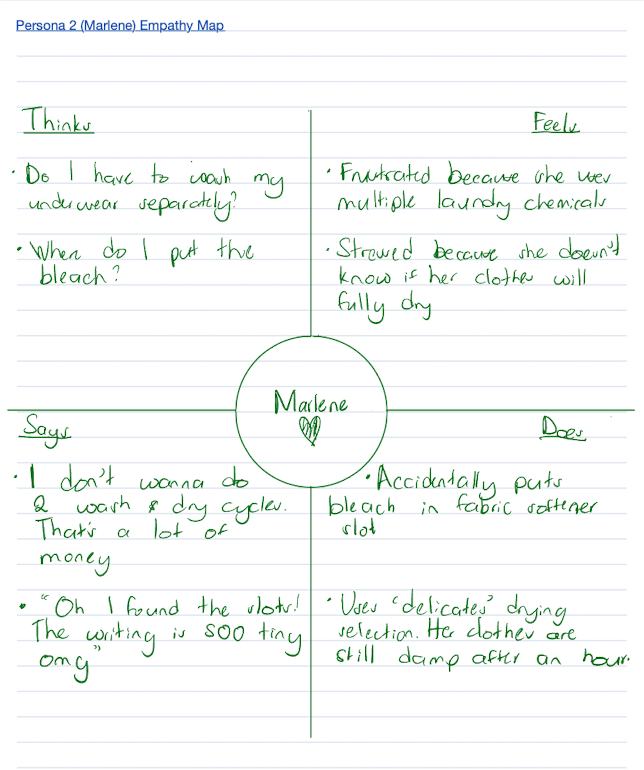 Persona 2 (Marlene) Empathy Map
Thinks
• Do I have to wash my
underwear separately?
• When do I put the
bleach?
Feels
• Frustrated because she uses
multiple laundry chemicals
• Stressed because she doesn't
know if her clothes will
fully dry
Marlene
Says
• I don't wanna do
2 wash & dry cycles.
That's a lot of
money
• "Oh I found the slots!
The writing is SOO tiny
omg"
Does
• Accidentally puts
bleach in fabric softener
slot
• Uses 'delicates' drying
selection. Her clothes are
still damp after an hour.